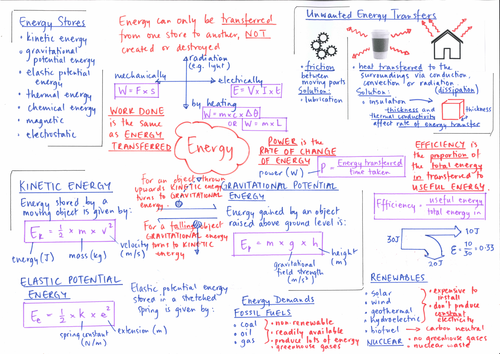 Energy Stores
• kinetic energy
• gravitational
potential energy
• elastic potential
energy
• thermal energy
• chemical energy
• magnetic
• electrostatic
Energy can only be transferred
from one store to another, NOT
created or destroyed
radiation
(e.g. light)
mechanically
W = F x s
electrically
E = V x I x t
by heating
W = m x c x Δθ
OR W = m x L
WORK DONE
is the same
as ENERGY
TRANSFERRED
Energy
Unwanted Energy Transfers
• friction
between
moving parts
Solution:
- lubrication
• heat transferred to the
surroundings via conduction,
convection or radiation
(dissipation)
Solution:
- insulation
thickness and
thermal conductivity
affect rate of energy transfer
thickness
POWER is the
RATE OF CHANGE
OF ENERGY
power (W)
P = Energy transferred
time taken
EFFICIENCY is
the proportion of
the total energy
in transferred to
USEFUL ENERGY.
Efficiency = useful energy
total energy in
30J
10J
20J
E = 10/30 = 0.33
KINETIC ENERGY
Energy stored by a
moving object is given by:
Ek = 1/2 x m x v²
energy (J)
mass (kg)
velocity
(m/s)
For an object thrown
upwards KINETIC energy
turns to GRAVITATIONAL
energy.
For a falling object
GRAVITATIONAL energy
turns to KINETIC
energy
GRAVITATIONAL POTENTIAL
ENERGY
Energy gained by an object
raised above ground level is:
Ep = m x g x h
gravitational
field strength
(m/s²)
height
(m)
ELASTIC POTENTIAL
ENERGY
Ee = 1/2 x k x e²
spring constant
(N/m)
extension (m)
Elastic potential energy
stored in a stretched
spring is given by:
Energy Demands
FOSSIL FUELS
• coal
• oil
• gas
• non-renewable
• readily available
• produce lots of energy
greenhouse gases
RENEWABLES
• solar
• wind
• geothermal
• hydroelectric
• biofuel → carbon neutral
• expensive to
install
• don't produce
constant
electricity
NUCLEAR
• no greenhouse gases
• nuclear waste